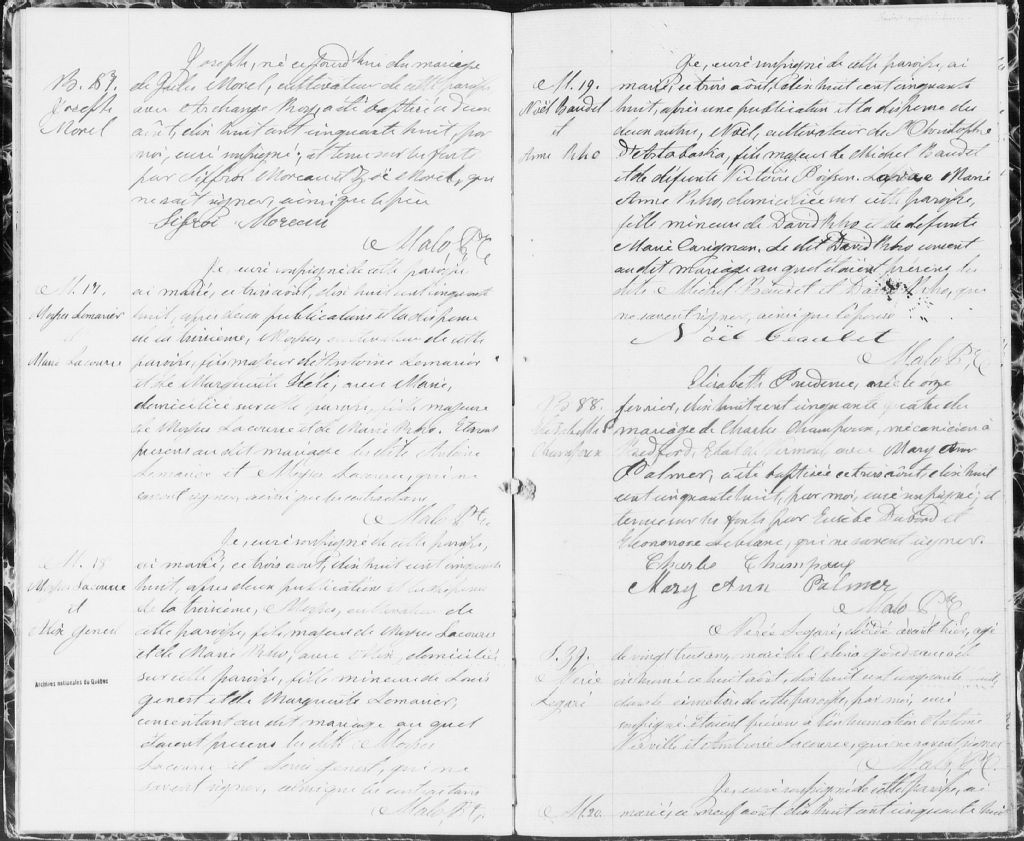 B. 87.
Joseph
Morel
Joseph, né aujourd'hui du mariage
de Jules Morel, cultivateur de cette paroisse
avec Archange Roy, a été baptisé ce deux
août, dix huit cent cinquante huit, par
moi, curé soussigné, et tenu sur les fonts
par Sifroi Moreau et Zoë Morel, qui
ne sait signer, ainsi que le père
Sifroi Moreau
Malo Ptre
M. 17.
Moyses Lemarier
et
Marie Lacourse
Je, curé soussigné de cette paroisse
ai marié, ce trois août, dix huit cent cinquante
huit, après deux publications et la dispense
de la troisième, Moyses, cultivateur de cette
paroisse, fils majeur d'Antoine Lemarier
et de Marguerite Héli, avec Marie,
domiciliée sur cette paroisse, fille majeure
de Moyses Lacourse et de Marie Rho. Etaient
présens au dit mariage les dits Antoine
Lemarier et Moyses Lacourse, qui ne
savent signer, ainsi que les contractans
Malo Ptre.
M. 18
Moyses Lacourse
et
Genest
Je, curé soussigné de cette paroisse,
ai marié, ce trois août, dix huit cent cinquante
huit, après deux publications et la dispense
de la troisième, Moyses, cultivateur de
cette paroisse, fils majeur de Moyses Lacourse
et de Marie Rho, avec domiciliée
sur cette paroisse, fille mineure de Louis
Genest et de Marguerite Lemarier,
consentant au dit mariage au quel
étaient présens les dits Moyses
Lacourse et Louis Genest, qui ne
savent signer, ainsi que les contractans
Malo Ptre
Archives nationales du Québec
M. 19.
Noël Baudet
et
Anne Rho
Je, curé soussigné de cette paroisse, ai
marié, ce trois août, dix huit cent cinquante
huit, après une publication et la dispense des
deux autres, Noël, cultivateur de St Christophe
d'Artabaska, fils majeur de Michel Baudet
et de défunte Victoire Poisson. Marie
Anne Rho, domiciliée sur cette paroisse,
fille mineure de David Rho et de défunte
Marie Carignan. Le dit David Rho consent
au dit mariage au quel étaient présens les
dits Michel Baudet et David Rho, qui
ne savent signer, ainsi que l'épouse
Noël Beaudet
Malo Ptre
B 88.
Elizabeth P
Champoux
Elizabeth Prudence, née le onze
fevrier, dix huit cent cinquante quatre du
mariage de Charles Champoux, mécanicien à
Etat de Vermont, avec Mary Ann
Palmer, a été baptisée ce trois août, dix huit
cent cinquante huit, par moi, curé soussigné, et
tenue sur les fonts par Eusèbe Dubord et
Eléonore Leblanc, qui ne savent signer.
Charles Champoux
Mary Ann Palmer
Malo Ptre
S. 39.
Nérée
Legaré
Nérée Legaré, décédé avant hier, agé
de vingt trois ans, mari de
inhumé ce huit août, dix huit cent cinquante huit,
dans le cimetière de cette paroisse, par moi, curé
soussigné. Etaient présens à l'inhumation Antoine
et Ambroise Lacourse, qui ne savent signer
Malo Ptre.
M. 20.
Je, curé soussigné de cette paroisse, ai
marié, ce neuf août dix huit cent cinquante huit